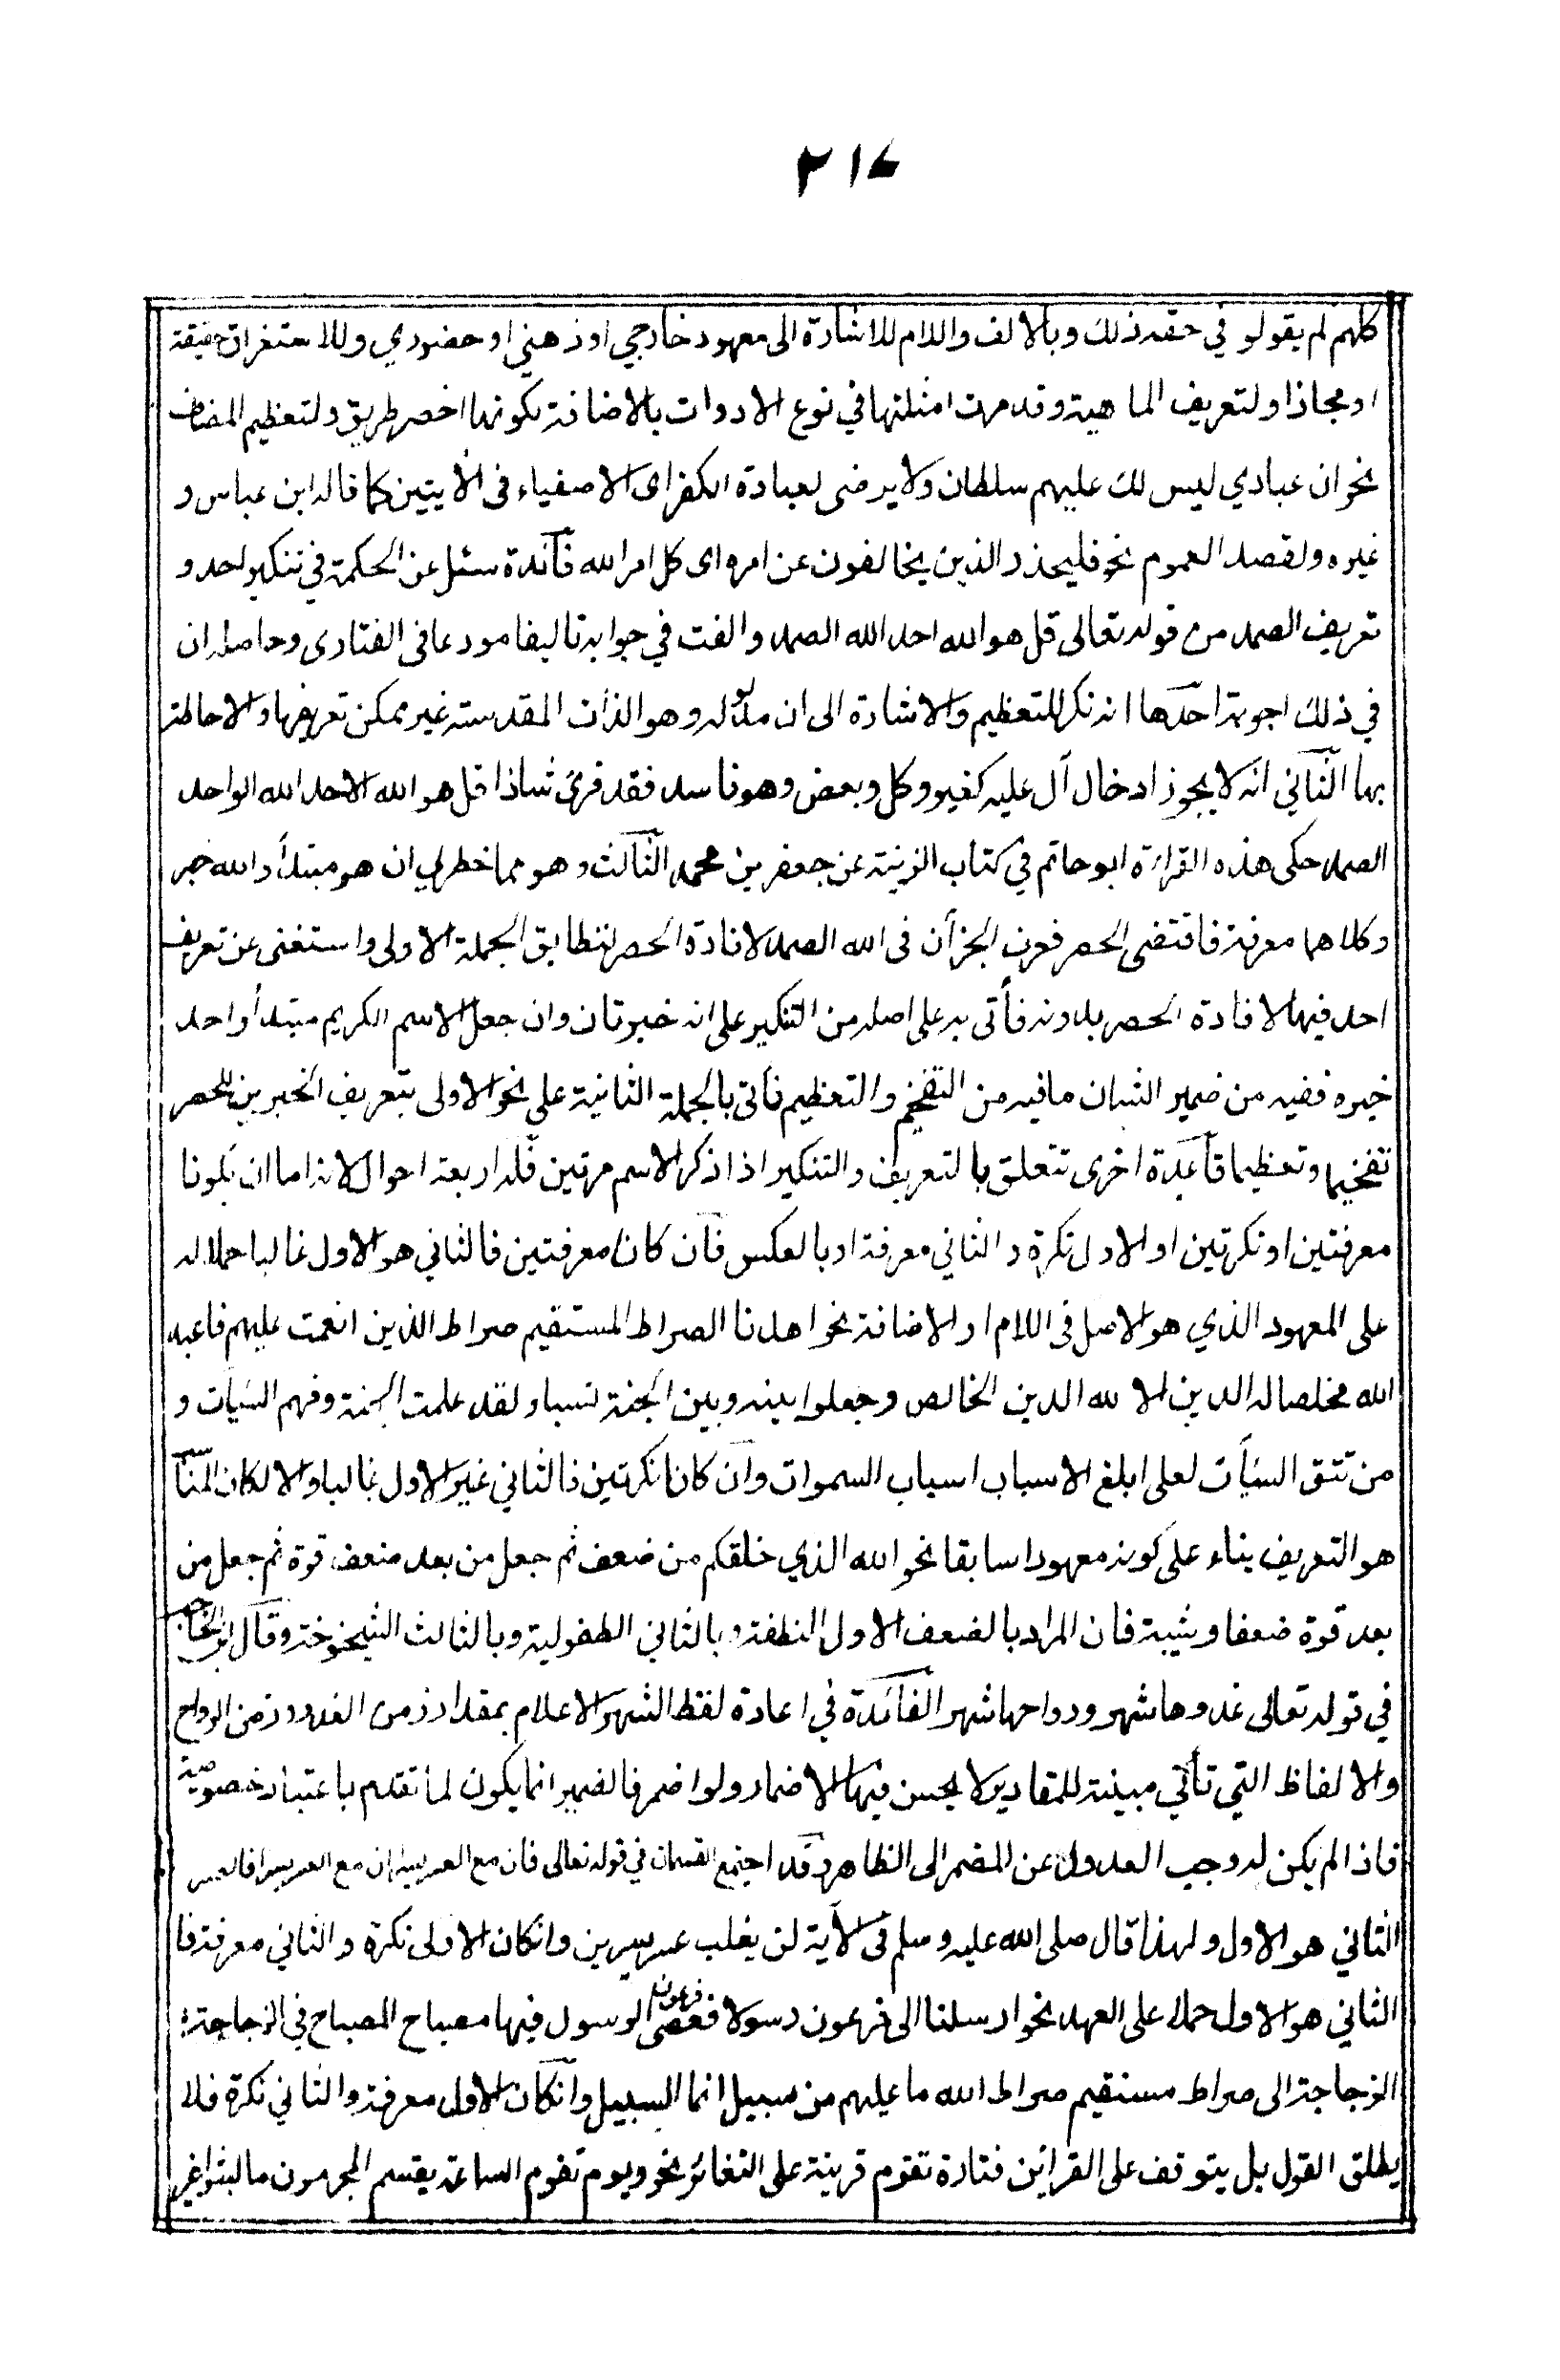 ٢١٤
كلهم لم يقولو في حقه ذلك وبالالف واللام للاشارة الى معهود خارجي او ذهني او حضوري وللاستغراق حقيقة
او مجازا ولتعريف الماهية وقد مرت امثلتها في نوع الادوات بالاضافة بكونها اخصر طريق ولتعظيم المضاف
نحو ان عبادي ليس لك عليهم سلطان ولا يرضى لعباده الكفر اى الاصفياء فى الأيتين كما قاله ابن عباس و
غيره ولقصد العموم نحو فليحذر الذين يخالفون عن امره اى كل امر الله فآئدة سئل عن الحكمة في تنكير احد و
تعريف الصمد من قوله تعالى قل هو الله احد الله الصمد والفت في جوابه تاليفا مودعا فى الفتاوى وحاصله ان
في ذلك اجوبة احدها انه نكر للتعظيم والاشارة الى ان مدلوله وهو الذات المقدسة غير ممكن تعريفها والاحاطة
بها الثاني انه لا يجوز ادخال آل عليه كغير وكل وبعض وهو فاسد فقد قرئ شاذا قل هو الله الاحد الله الواحد
الصمد حكى هذه القراءة ابو حاتم في كتاب الزينة عن جعفر بن محمد الثالث وهو مما خطر لي ان هو مبتدأ والله خبر
وكلاهما معرفة فاقتضى الحصر فعرف الجزآن فى الله الصمد لافادة الحصر لتطابق الجملة الاولى واستغنى عن تعريف
احد فيها لافادة الحصر بدونه فأتى به على اصله من التنكير على انه خبر ثان وان جعل الاسم الكريم مبتدأ واحد
خبره ففيه من ضمير الشان ما فيه من التفخيم والتعظيم فاتى بالجملة الثانية على نحو الاولى بتعريف الخبرين للحصر
تفخيما وتعظيما قاعدة اخرى تتعلق بالتعريف والتنكير اذا ذكر الاسم مرتين فله اربعة احوال لانه اما ان يكونا
معرفتين او نكرتين او الاول نكرة والثاني معرفة او بالعكس فان كانا معرفتين فالثاني هو الاول غالبا حملا له
على المعهود الذي هو الاصل فى اللام او الاضافة نحو اهدنا الصراط المستقيم صراط الذين انعمت عليهم فاعبد
الله مخلصا له الدين الا لله الدين الخالص وجعلوا بينه وبين الجنة نسبا ولقد علمت الجنة وقهم السيات و
من تتق السيأت لعلى ابلغ الاسباب اسباب السموات وان كانا نكرتين فالثاني غير الاول غالبا والا لكان المناسب
هو التعريف بناء على كونه معهودا سابقا نحو الله الذي خلقكم من ضعف ثم جعل من بعد ضعف قوة ثم جعل من
بعد قوة ضعفا وشيبة فان المراد بالضعف الاول النطفة وبالثاني الطفولية وبالثالث الشيخوخة وقال ابن الحاجب
في قوله تعالى غدوها شهر ورواحها شهر الفائدة في اعادة لفظ الشهر الاعلام بمقدار زمن الغدو وزمن الرواح
والالفاظ التي تأتي مبينة للمقادير لا يحسن فيها الاضمار ولو اضمر فالضمير انما يكون لما تقدم باعتبار خصوصية
فاذا لم يكن له وجب العدول عن المضمر الى الظاهر وقد اجتمع القسمان في قوله تعالى فان مع العسر يسرا ان مع العسر يسرا فالعسر
الثاني هو الاول ولهذا قال صلى الله عليه وسلم فى الأية لن يغلب عسر يسرين وانكان الاولى نكرة والثاني معرفة فا
الثاني هو الاول حملا على العهد نحو ارسلنا الى فرعون رسولا فعصى فرعون الرسول فيها مصباح المصباح في الزجاجة
الزجاجة الى صراط مستقيم صراط الله ما عليهم من سبيل انما السبيل وانكان الاول معرفة والثاني نكرة فلا
يطلق القول بل يتوقف على القرائن فتارة تقوم قرينة على التغائر نحو ويوم تقوم الساعة يقسم المجرمون ما لبثوا غير